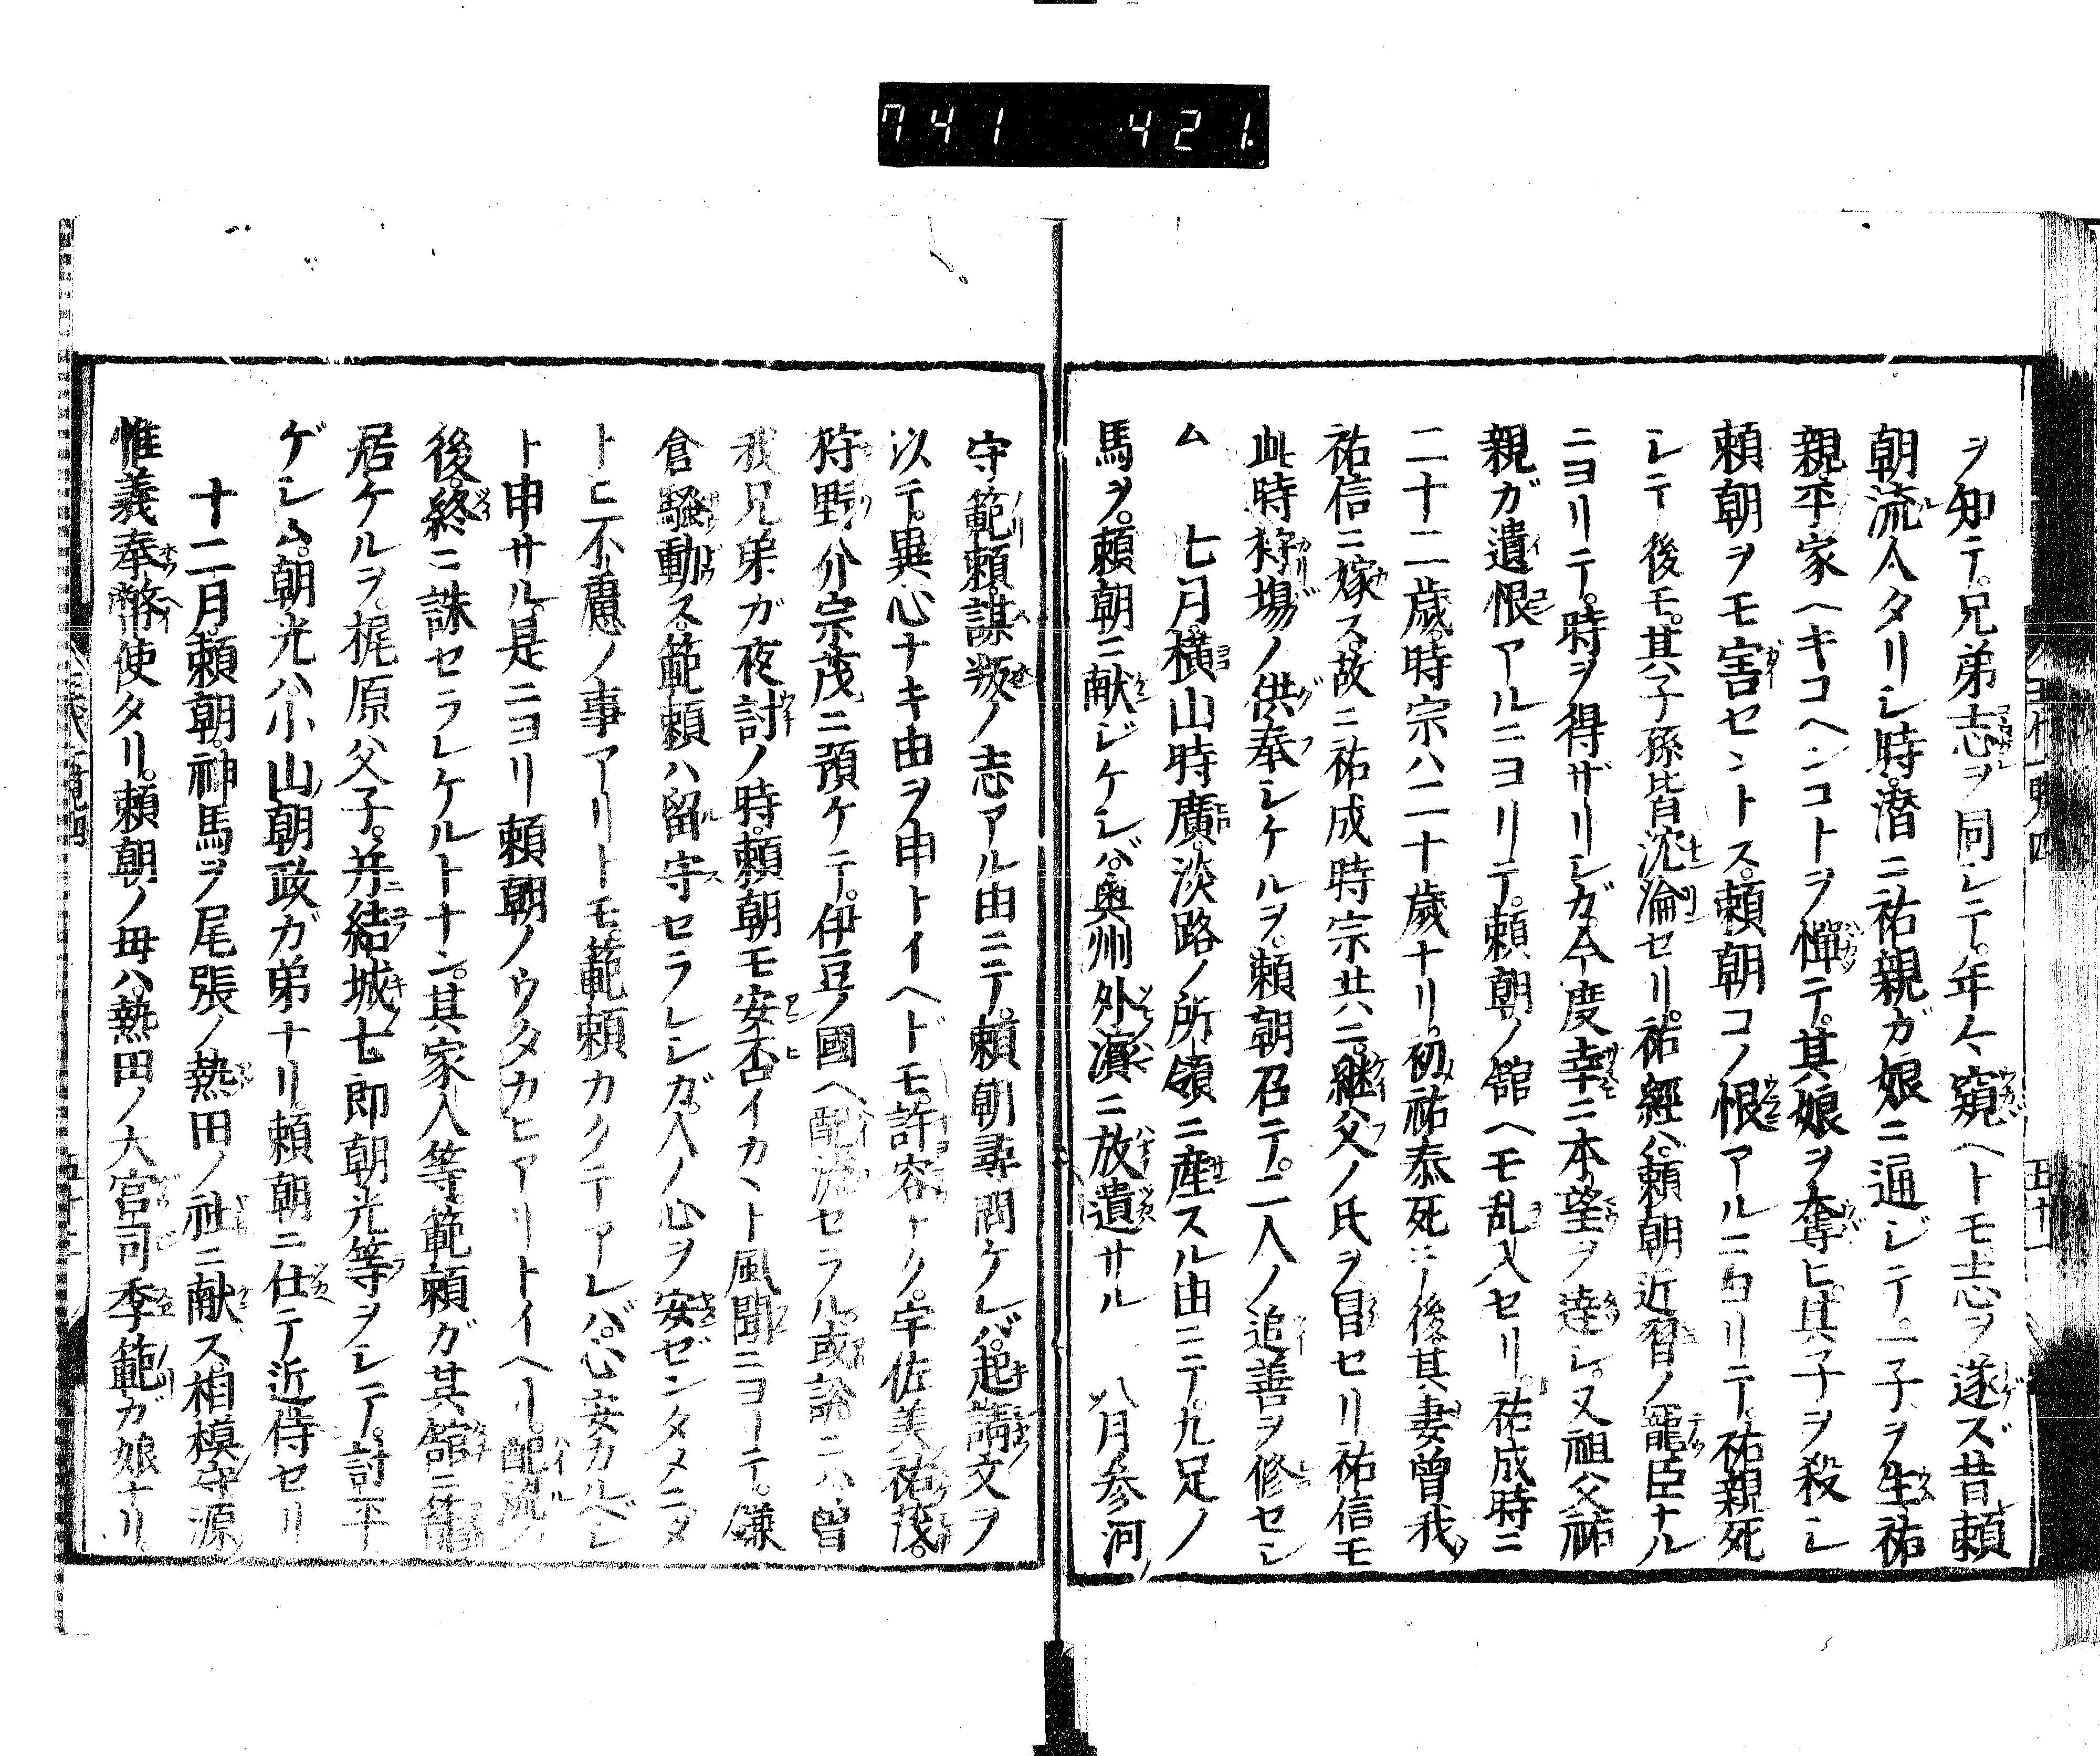 741 421
ヲ知テ。兄弟志ヲ同シテ。年々窺ヘトモ志ヲ遂ズ昔頼
朝流人タリシ時。潜ニ祐親ガ娘ニ通ジテ。一子ヲ生。祐
親平家ヘキコヘンコトヲ憚テ。其娘ヲ奪ヒ。其子ヲ殺シ
頼朝ヲモ害セントス。頼朝コノ恨アルニヨリテ。祐親死
シテ後モ。其子孫皆沈淪セリ。祐經ハ。頼朝近習ノ寵臣ナル
ニヨリテ。時ヲ得ザリシガ。今度幸ニ本望ヲ達シ。又祖父祐
親ガ遺恨アルニヨリテ。頼朝ノ舘ヘモ乱入セリ。祐成時ニ
二十二歳。時宗ハ二十歳ナリ。初祐泰死シ後。其妻曽我
祐信ニ嫁ス。故ニ祐成時宗共ニ。継父ノ氏ヲ冒セリ祐信モ
此時狩塲ノ供奉シケルヲ。頼朝召テ。二人ノ追善ヲ修セシ
ム　七月。横山時廣。淡路ノ所領ニ産スル由ニテ。九足ノ
馬ヲ。頼朝ニ献ジケレバ。奥州外濵ニ放遣サル　八月参河
守範頼。謀叛ノ志アル由ニテ。頼朝尋問ケレバ。起請文ヲ
以テ。異心ナキ由ヲ申トイヘドモ。許容ナク。宇佐美祐茂。
狩野介宗茂ニ預ケテ。伊豆ノ國ヘ配流セラル。或説ニハ。曽
我兄弟ガ夜討ノ時。頼朝モ安否イカヽト風聞ニヨリテ。鎌
倉騒動ス。範頼ハ留守セラレシガ。人ノ心ヲ安ゼンタメニタ
トヒ不慮ノ事アリトモ。範頼カクテアレバ。心安カルベシ
ト申サル。是ニヨリ頼朝ノウタカヒアリトイヘリ。配流ノ
後。終ニ誅セラレケルトナン。其家人等。範頼ガ其舘ニ籠
居ケルヲ。梶原父子。并結城七郎朝光等ヲシテ。討平
ゲシム。朝光ハ小山朝政ガ弟ナリ。頼朝ニ仕テ近侍セリ
十二月。頼朝。神馬ヲ尾張ノ熱田ノ社ニ献ス。相模守源
惟義奉幣使タリ。頼朝ノ母ハ。熱田ノ大宮司季範ガ娘ナリ。